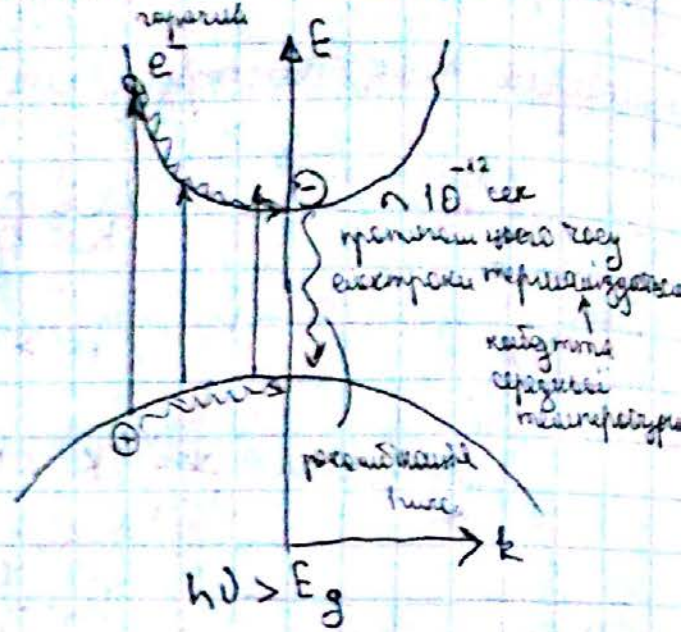 гарячий
e⁻
E
⊖
~ 10⁻¹² сек
протягом цього часу
електрони термалізуються
набуття
середньої
температури
⊕
рекомбінація
k
hν > E_g